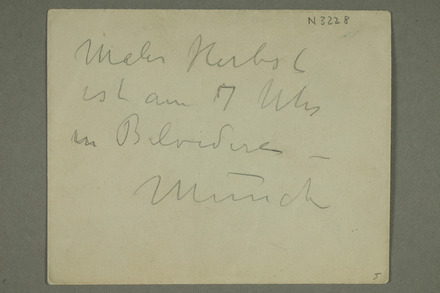 N 3228
Maler Herbst
ist am 7 Uhr
in Belvidere –
Munch
5